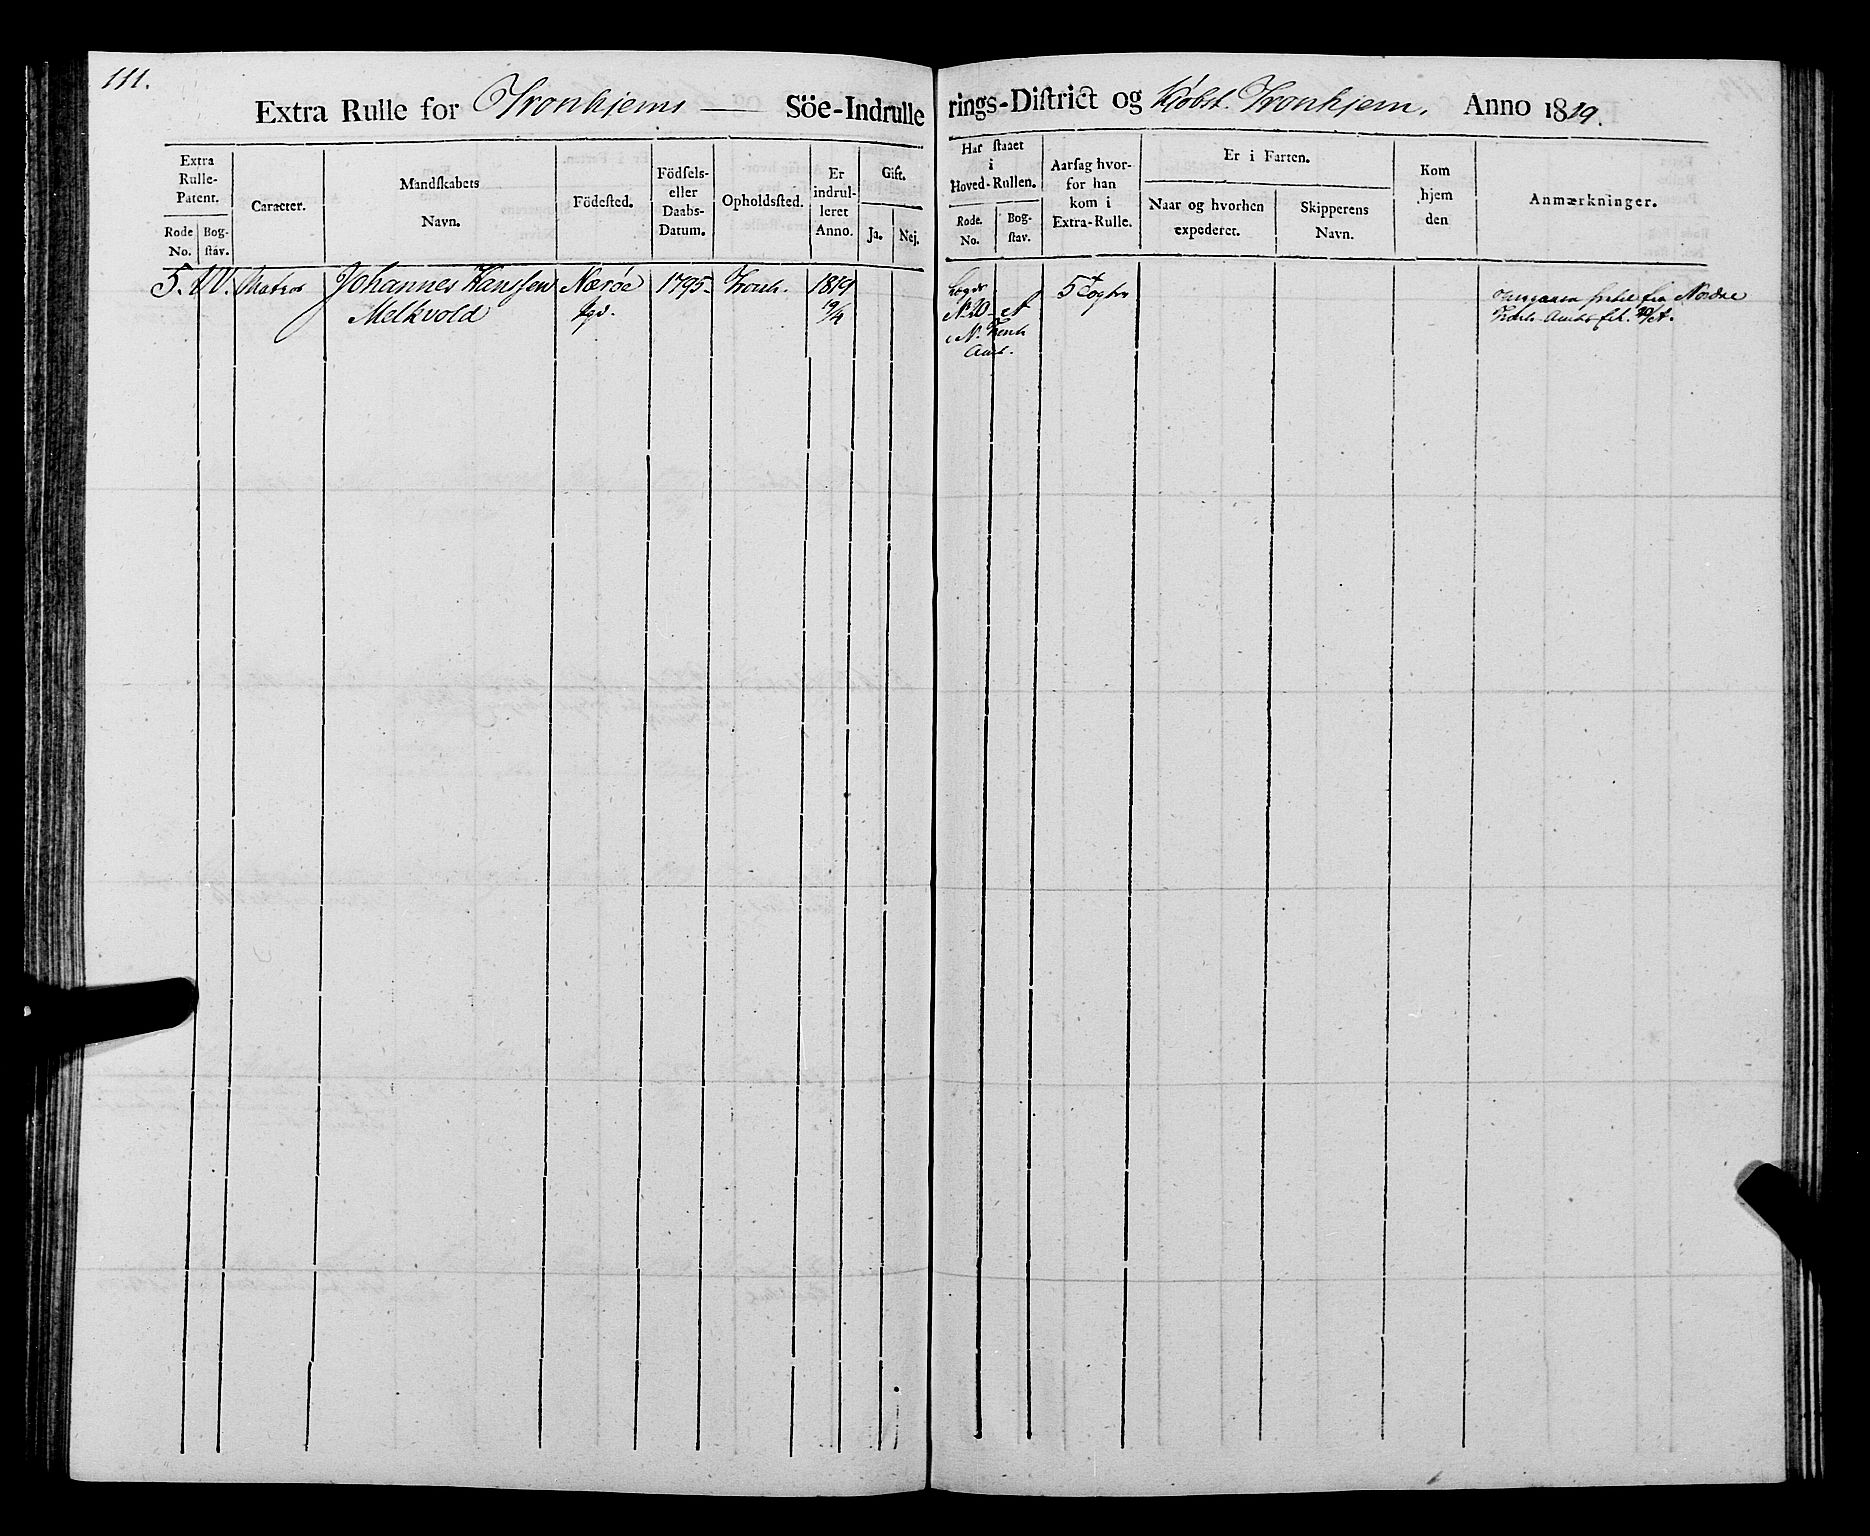 111.
Extra Rulle for Tronhjems — Söe-Indrullerings-District og Kjøbst. Tronhjem, Anno 1819.
Extra Rulle-Patent.
Rode No.
Bog-stav.
Caracter.
Mandskabets Navn.
Födested.
Födsels- eller Daabs-Datum.
Opholdsted.
Er indrulleret Anno.
Gift.
Ja.
Nej.
Har staaet i Hoved-Rullen.
Rode No.
Bog-stav.
Aarsag hvorfor han kom i Extra-Rulle.
Er i Farten.
Naar og hvorhen expederet.
Skipperens Navn.
Kom hjem den
Anmærkninger.
5. W. Matros Johannes Hanssen Nærøe 1795- Tronh. 1819 5 Togter
Melkvold Pgd. 19/4
N. Tronh
Amt.
fra Nordre